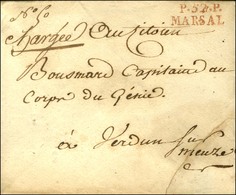 N° 50
P.52.P.
MARSAL
Chargé Au Citoien
Bousmard Capitaine au
Corps du Génie.
à Verdun sur
meuze